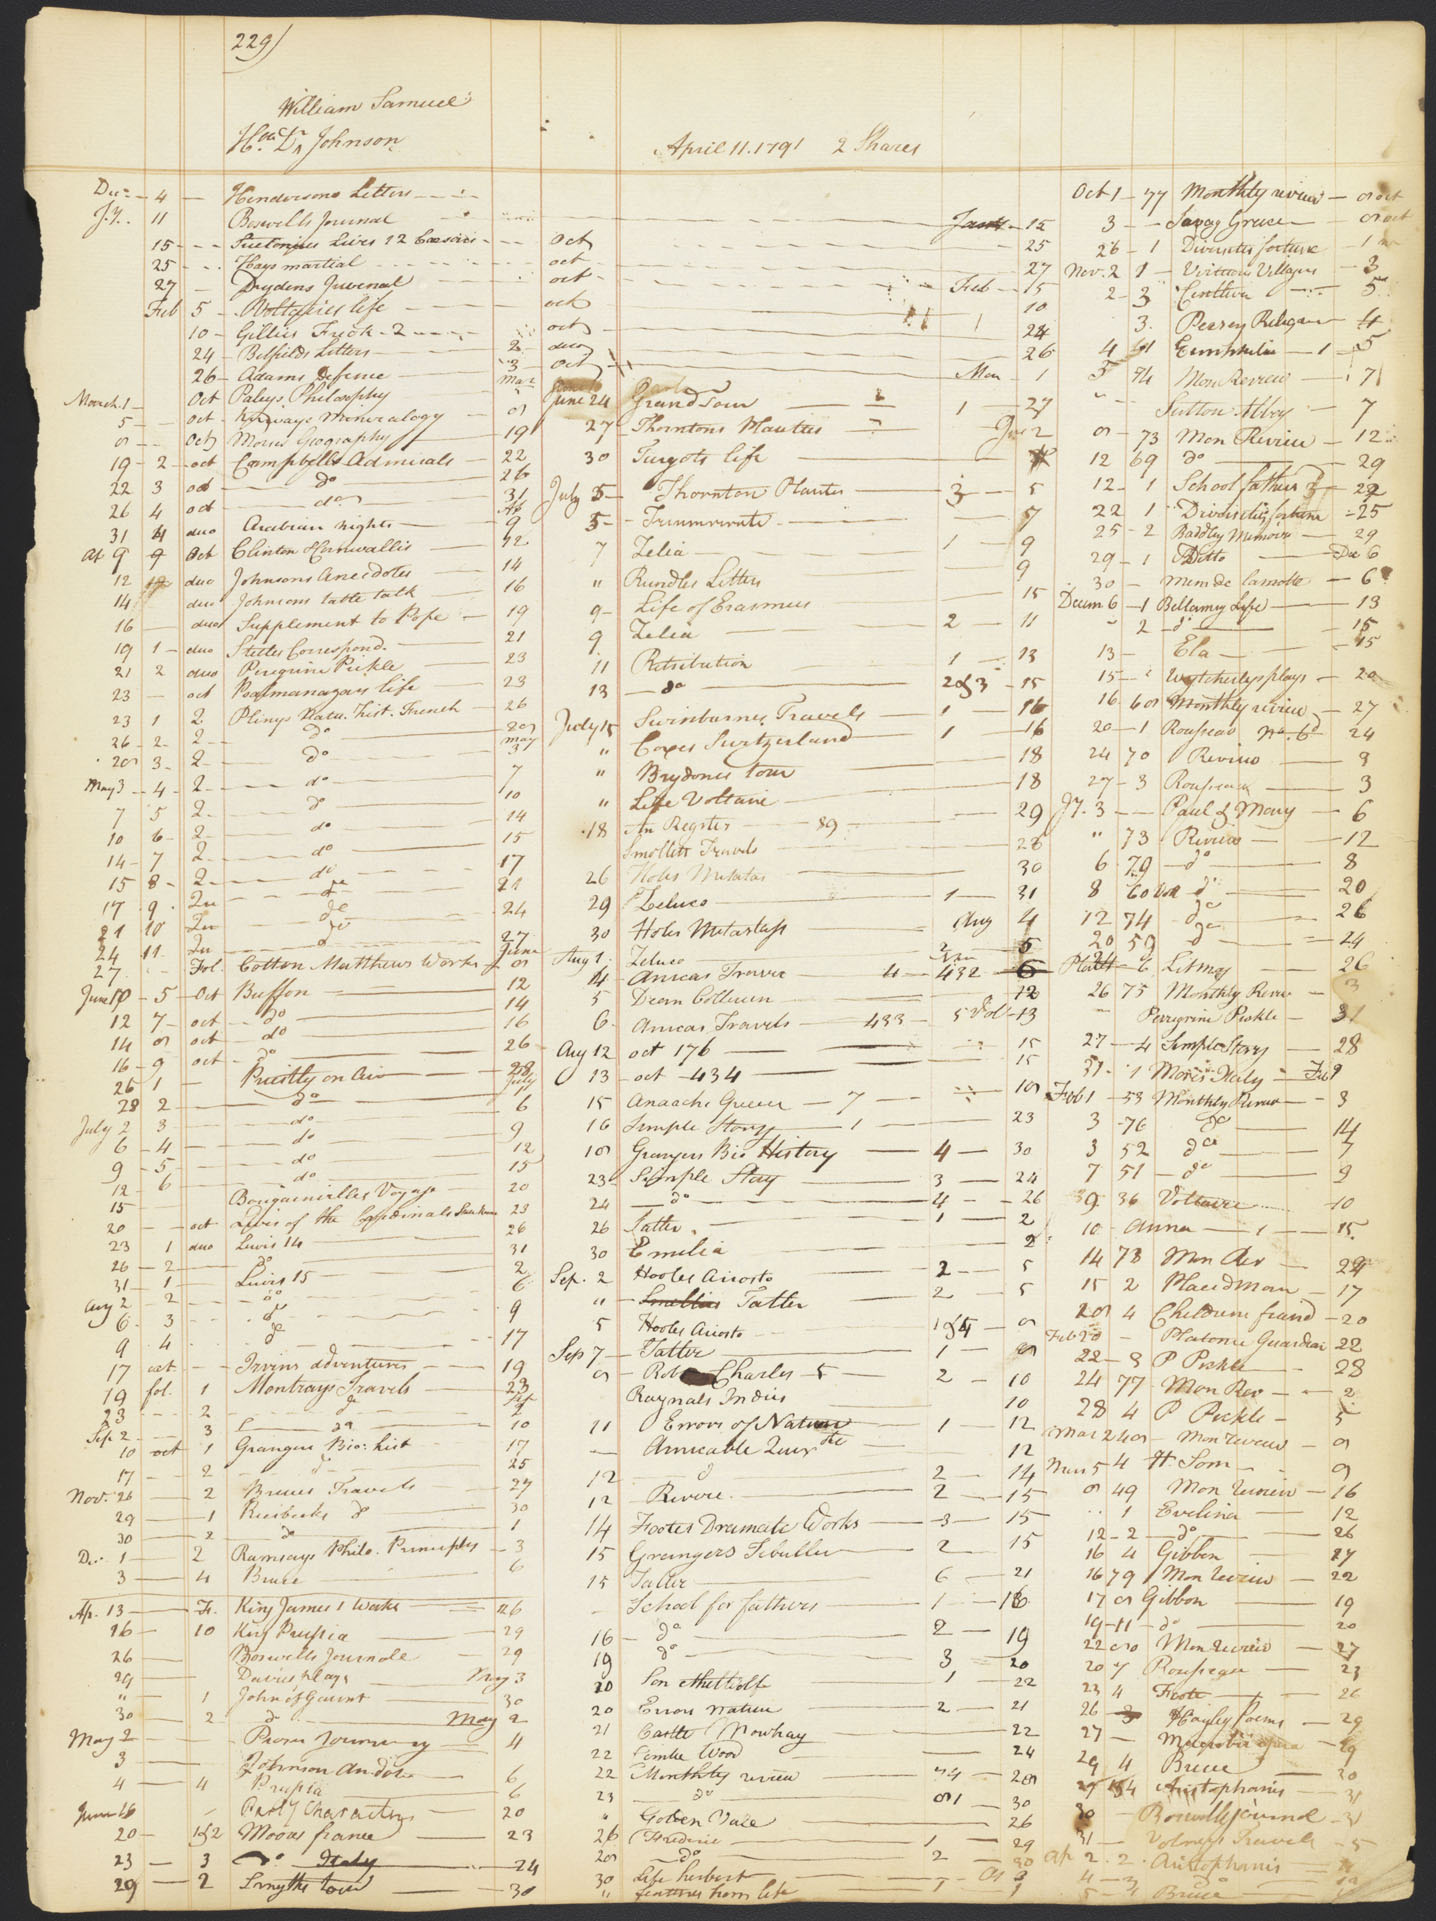 229)
William Samuel
Hon. Dr Johnson
April 11. 1791 2 Shares
Dec 4 Hendersons Letters
Jy. 11 Boswells Journal Jany 15
15 Suetonius Lives 12 Caesars oct 25
25 Hays martial oct 27
27 Drydens Juvenal oct Feb 5
Feb 5 Voltaires life oct 10
10 Gillies Fredk 2 oct 24
24 Belfields Letters 2 duo 26
26 Adams Defence 3 oct Mar 1
March 1 Oct Paleys Philosophy
5 oct Kirwans Mineralogy 8
8 Oct Morses Geography 19
19 2 oct Campbells Admirals 22
22 3 oct do 26
26 4 oct do 31
31 4 duo Arabian nights Ap 9
Ap 9 9 Oct Clinton & Cornwallis 12
12 duo Johnsons Anecdotes 14
14 duo Johnsons table talk 16
16 duo Supplement to Pope 19
19 1 duo Steeles Correspond. 21
21 2 duo Peregrine Pickle 23
23 oct Psalmanazars life 23
23 1 2 Plinys Natu. Hist. French 26
26 2 2 do 28
28 3 2 do May 3
May 3 4 2 do 7
7 5 2 do 10
10 6 2 do 14
14 7 2 do 15
15 8 2 do 17
17 9 Qu do 21
21 10 Qu do 24
24 11 Qu do 27
27 Fol. Cotton Matthews Works June 8
June 10 5 Oct Buffon 12
12 7 oct do 14
14 8 oct do 16
16 9 oct do 26
26 1 Priestly on Air 28
28 2 do July 2
July 2 3 do 6
6 4 do 9
9 5 do 12
12 6 do 15
15 Bougainvilles Voyage 20
20 oct Lives of the Cardinals 23
23 1 duo Lewis 14 26
26 2 do 31
31 1 Lewis 15 2
Aug 2 2 do 6
6 3 do 9
9 4 do 17
17 oct Irvins adventures 19
19 fol. 1 Montrays Travels 23
23 2 do Sep 2
Sep 2 3 do 10
10 oct 1 Grangers Bio. Hist 17
17 2 do 25
Nov. 26 2 Bruces Travels 29
29 1 Riesbecks do 30
30 2 do 1
De. 1 2 Ramsays Philo. Principles 3
3 4 Bruce 6
Ap. 13 F. King James 1 Works 26
26 10 King Prussia 29
26 Boswells Journale 29
29 Davies plays May 3
" 1 John of Gaunt 30
30 2 do May 2
May 2 Journey 4
3 Johnson Andote 6
4 4 Prussia 6
June 16 Characters 20
20 1&2 Moores france 23
23 3 do Italy 24
29 2 Smyths tour 30
June 24 Grand Tour 1 27
27 Thorntons Plautus 2
30 Turgots life
July 3 Thornton Plautus 3 5
5 Triumvirate 7
7 Zelia 1 9
" Rundles Letters 9
9 Life of Erasmus 15
9 Zelia 2 11
11 Retribution 1 13
13 do 2&3 15
July 15 Swinburnes Travels 1 16
" Coxes Switzerland 1 16
" Brydones tour 18
" Life Voltaire 18
18 An Register 89 29
Smollett Travels 28
26 Holes Metastas 30
29 Zeluco 1 31
30 Holes Metastass Aug 4
Aug 1 Zeluco 2 5
4 Anicas Travel 4 432 6
5 Dean Colburn 12
6 Anicas Travels 433 5 Vol 13
Aug 12 oct 176 15
13 oct 434 15
15 Anachs Greece 7 18
16 Simple Story 1 23
18 Grangers Bio History 4 30
23 Simple Story 3 24
24 do 4 26
26 Tatler 1 2
30 Emilia 2
Sep. 2 Hooles Ariosto 2 5
" Smellies Tatler 2 5
5 Hooles Ariosto 1&4 8
Sep 7 Tatler 1 8
8 Rob Charles 5 2 10
Raynals Indies 10
11 Errors of Nature 1 12
Amicable Quix 12
12 do 2 14
12 Revere 2 15
14 Footes Dramatic Works 3 15
15 Graingers Tibullus 2 15
15 Tatler 6 21
School for fathers 1 16
16 do 2 19
19 do 3 20
20 Son Ethelwolfe 1 22
20 Errors nature 2 21
21 Castle Mowbray 22
22 Wood 24
22 Monthly review 74 28
23 do 81 30
" Golden Vale 26
26 Frederic 1 29
28 do 2 30
30 Life herbert Oc 3
" features from life 1 1
Oct 1 77 Monthly review
3 Savag Grace
26 1 Diversities fortune 1
Nov. 2 1 Victorious Villagers 3
2 3 Centhiver 5
3. Persey Religion 4
4 41 1 5
5 74 Mon Review 7
Sutton Abbey 7
8 73 Mon Review 12
12 69 do 29
12 1 School fathers 3 22
22 1 Diversities fortune 25
25 2 Baddley Memoirs 29
29 1 Ditto Dec 6
30 Mem de lamotte 6
Decem 6 1 Bellamy Life 13
" 2 do 15
13 Ela 15
15 Wycherleys plays 20
16 68 Monthly review 27
20 1 Rousseau 24
24 70 Review 3
27 3 Rousseau 3
Jy. 3 Paul & Mary 6
" 73 Review 12
6 79 do 8
8 60 do 20
12 74 do 26
20 59 do 24
24 6 Litmay 26
26 75 Monthly Revw 3
Perrigrine Pickle 31
27 4 Simple Story 28
31 1 Mores Italy Feb 1
Feb 1 53 Monthly Review 3
3 76 do 14
3 52 do 7
7 51 do 9
9 36 Voltaire 10
10 Anna 1 15
14 78 Mon Rev 24
15 2 Placid Man 17
18 4 Childrens friend 20
Feb 20 Platonic Guardian 22
22 3 P Pickle 28
24 77 Mon Rev 2
28 4 P Pickle 5
Mar 2 48 Mon review 8
Mar 5 4 H Som 9
8 49 Mon review 16
1 Evelina 12
12 2 do 26
16 4 Gibbon 27
16 79 Mon review 22
17 8 Gibbon 19
19 11 do 20
22 80 Mon review 27
20 7 Rousseau 23
23 4 Foote 26
26 3 Hayley Poems 29
27 29
29 4 Bruce 20
29 4 Aristophanis 31
30 Boswells journal 31
31 Volneys Travels 5
Ap 2 2 Aristophanis
4 3 do
5 4 Bruce